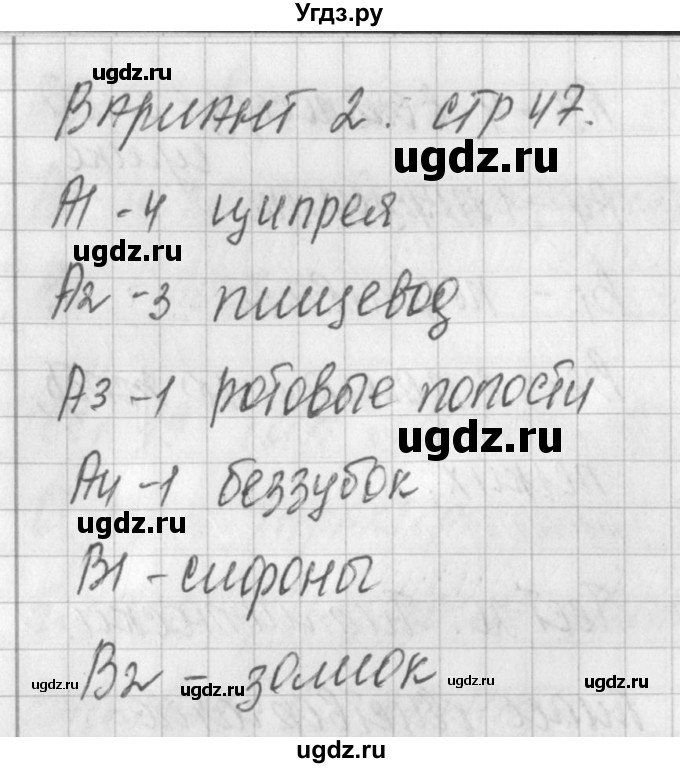 Угдз.ру
ugdz.ru
Вариант 2. стр 47.
ugdz.ru
А1 - 4 ципрея
ugdz.ru
А2 - 3 пищевод
А3 - 1 ротовые полости
ugdz.ru
А4 - 1 беззубок
ugdz.ru
В1 - сифоны
В2 - замок
ugdz.ru ugdz.ru ugdz.ru ugdz.ru
ugdz.ru